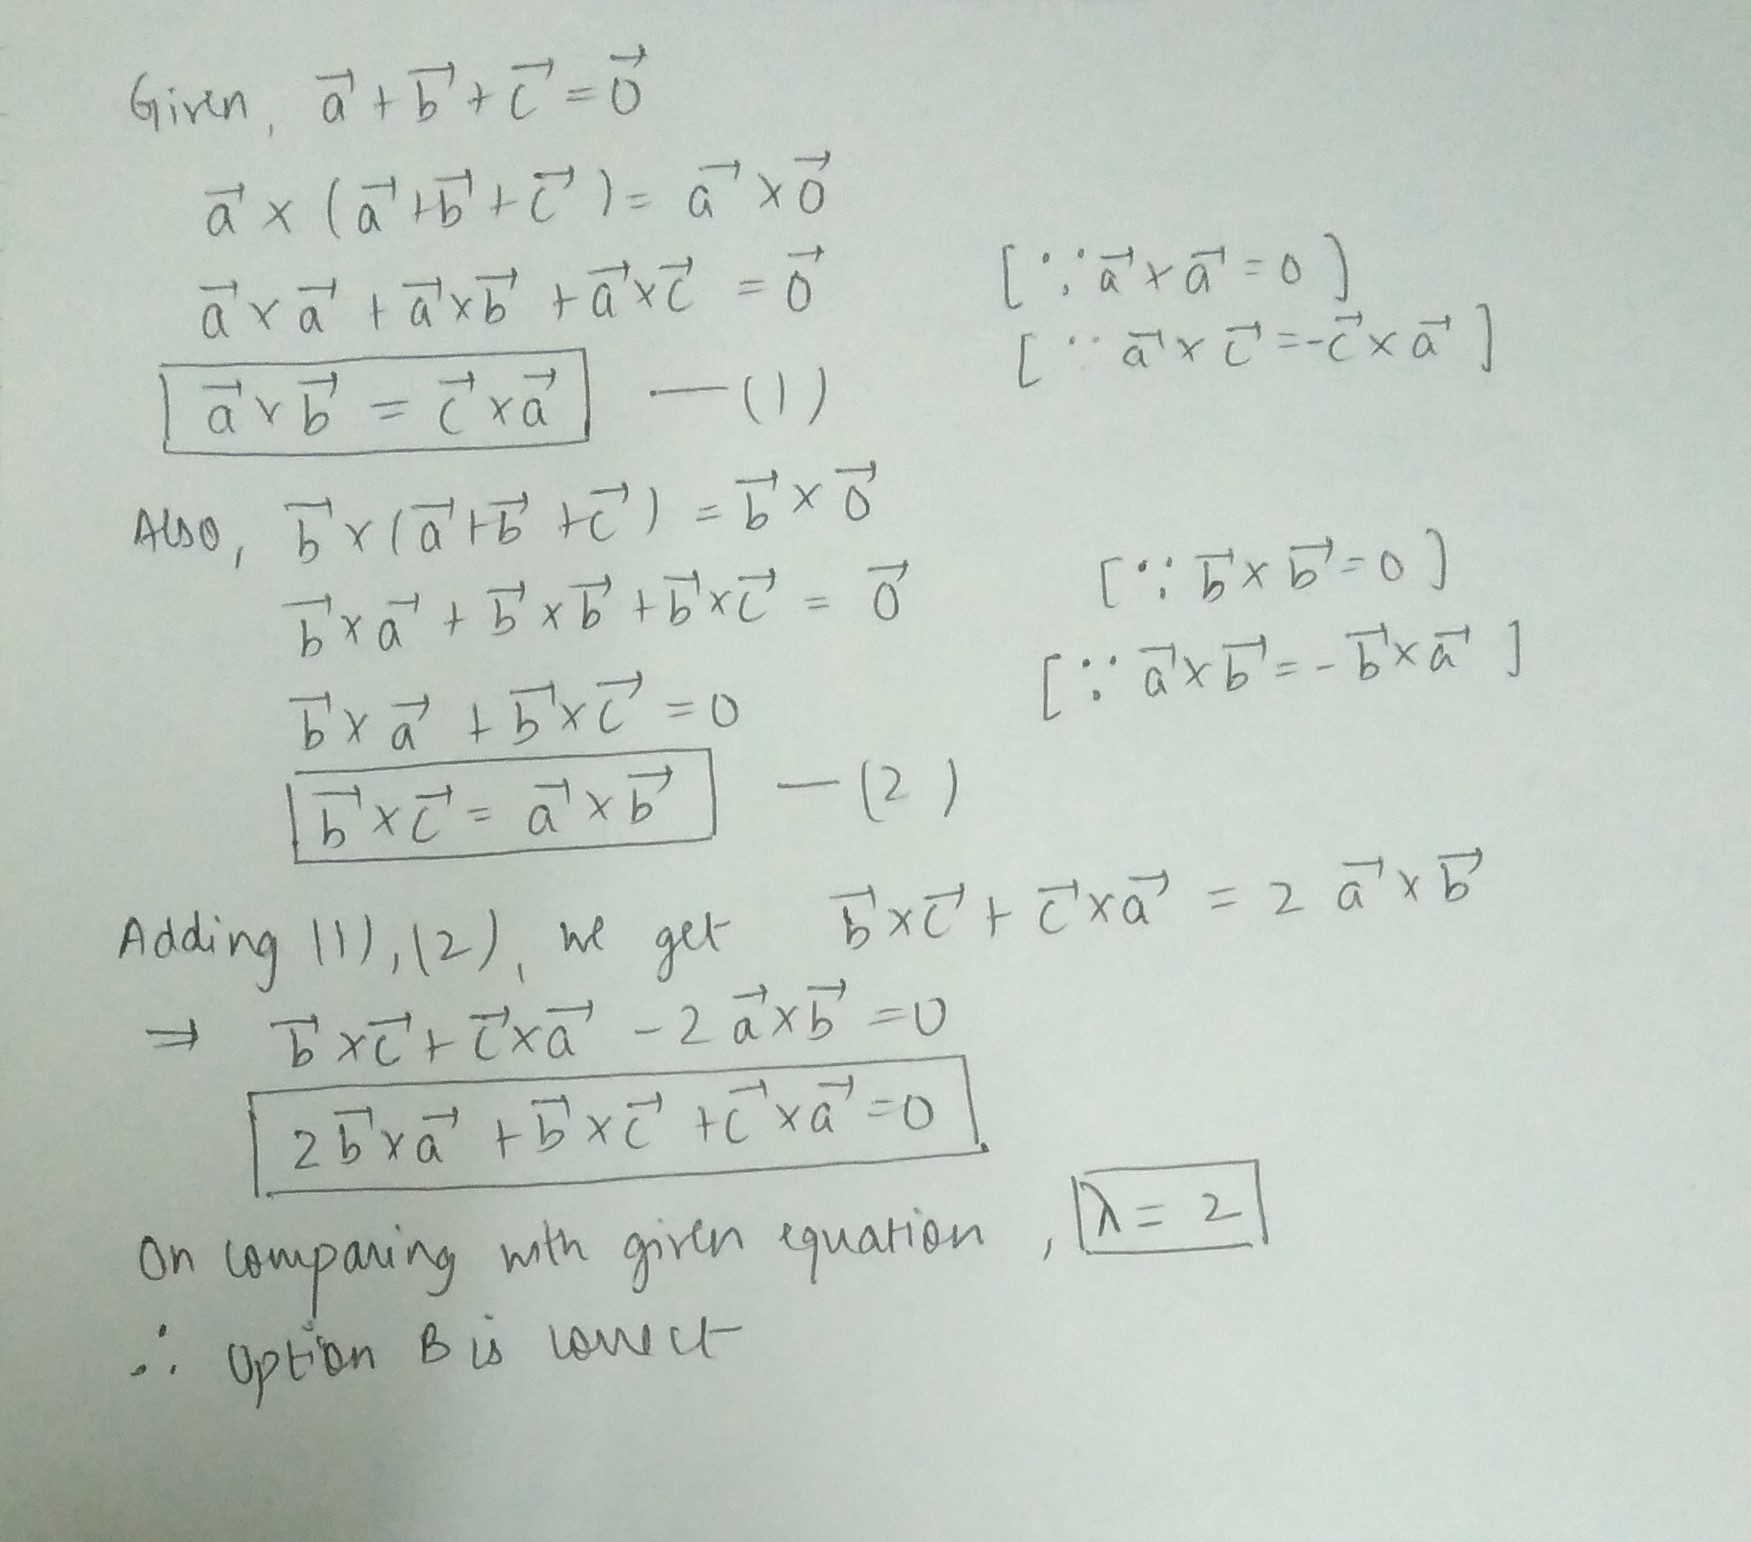 Given, a⃗ + b⃗ + c⃗ = 0⃗
a⃗ × (a⃗ + b⃗ + c⃗) = a⃗ × 0⃗
a⃗ × a⃗ + a⃗ × b⃗ + a⃗ × c⃗ = 0⃗ [∵ a⃗ × a⃗ = 0]
[∵ a⃗ × c⃗ = -c⃗ × a⃗]
a⃗ × b⃗ = c⃗ × a⃗ —(1)
Also, b⃗ × (a⃗ + b⃗ + c⃗) = b⃗ × 0⃗
b⃗ × a⃗ + b⃗ × b⃗ + b⃗ × c⃗ = 0⃗ [∵ b⃗ × b⃗ = 0]
b⃗ × a⃗ + b⃗ × c⃗ = 0 [∵ a⃗ × b⃗ = -b⃗ × a⃗]
b⃗ × c⃗ = a⃗ × b⃗ —(2)
Adding (1), (2), we get b⃗ × c⃗ + c⃗ × a⃗ = 2 a⃗ × b⃗
⇒ b⃗ × c⃗ + c⃗ × a⃗ - 2 a⃗ × b⃗ = 0
2 b⃗ × a⃗ + b⃗ × c⃗ + c⃗ × a⃗ = 0
On comparing with given equation, λ = 2
∴ Option B is correct